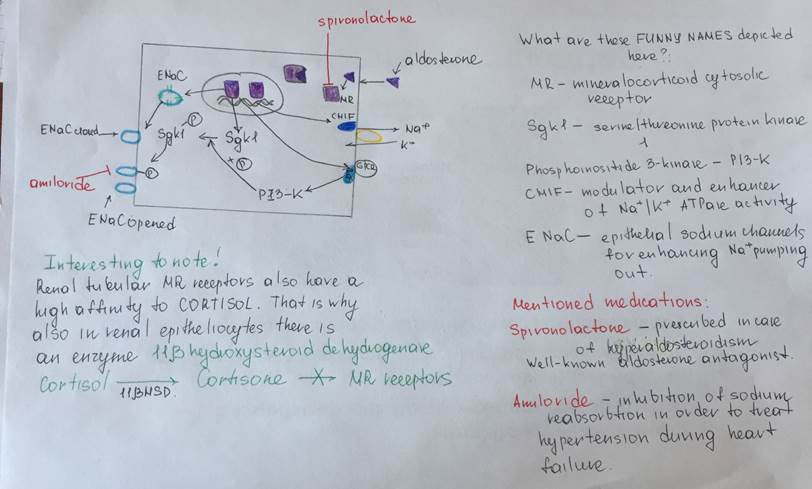 spironolactone
aldosterone
ENaC
MR
CHIF
Na⁺
K⁺
ENaC closed
Sgk1
P
Sgk1
+P
P
amiloride
PI3-K
ENaC opened
Interesting to note!
Renal tubular MR receptors also have a
high affinity to CORTISOL. That is why
also in renal epitheliocytes there is
an enzyme 11β hydroxysteroid dehydrogenase
Cortisol → Cortisone → MR receptors
11βHSD.
What are these FUNNY NAMES depicted
here?:
MR – mineralocorticoid cytosolic
receptor
Sgk1 – serine/threonine protein kinase
1
Phosphoinositide 3-kinase – PI3-K
CHIF – modulator and enhancer
of Na⁺/K⁺ ATPase activity
ENaC – epithelial sodium channels
for enhancing Na⁺ pumping
out.
Mentioned medications:
Spironolactone – prescribed in case
of hyperaldosteroidism
Well-known aldosterone antagonist.
Amiloride – inhibition of sodium
reabsorbtion in order to treat
hypertension during heart
failure.